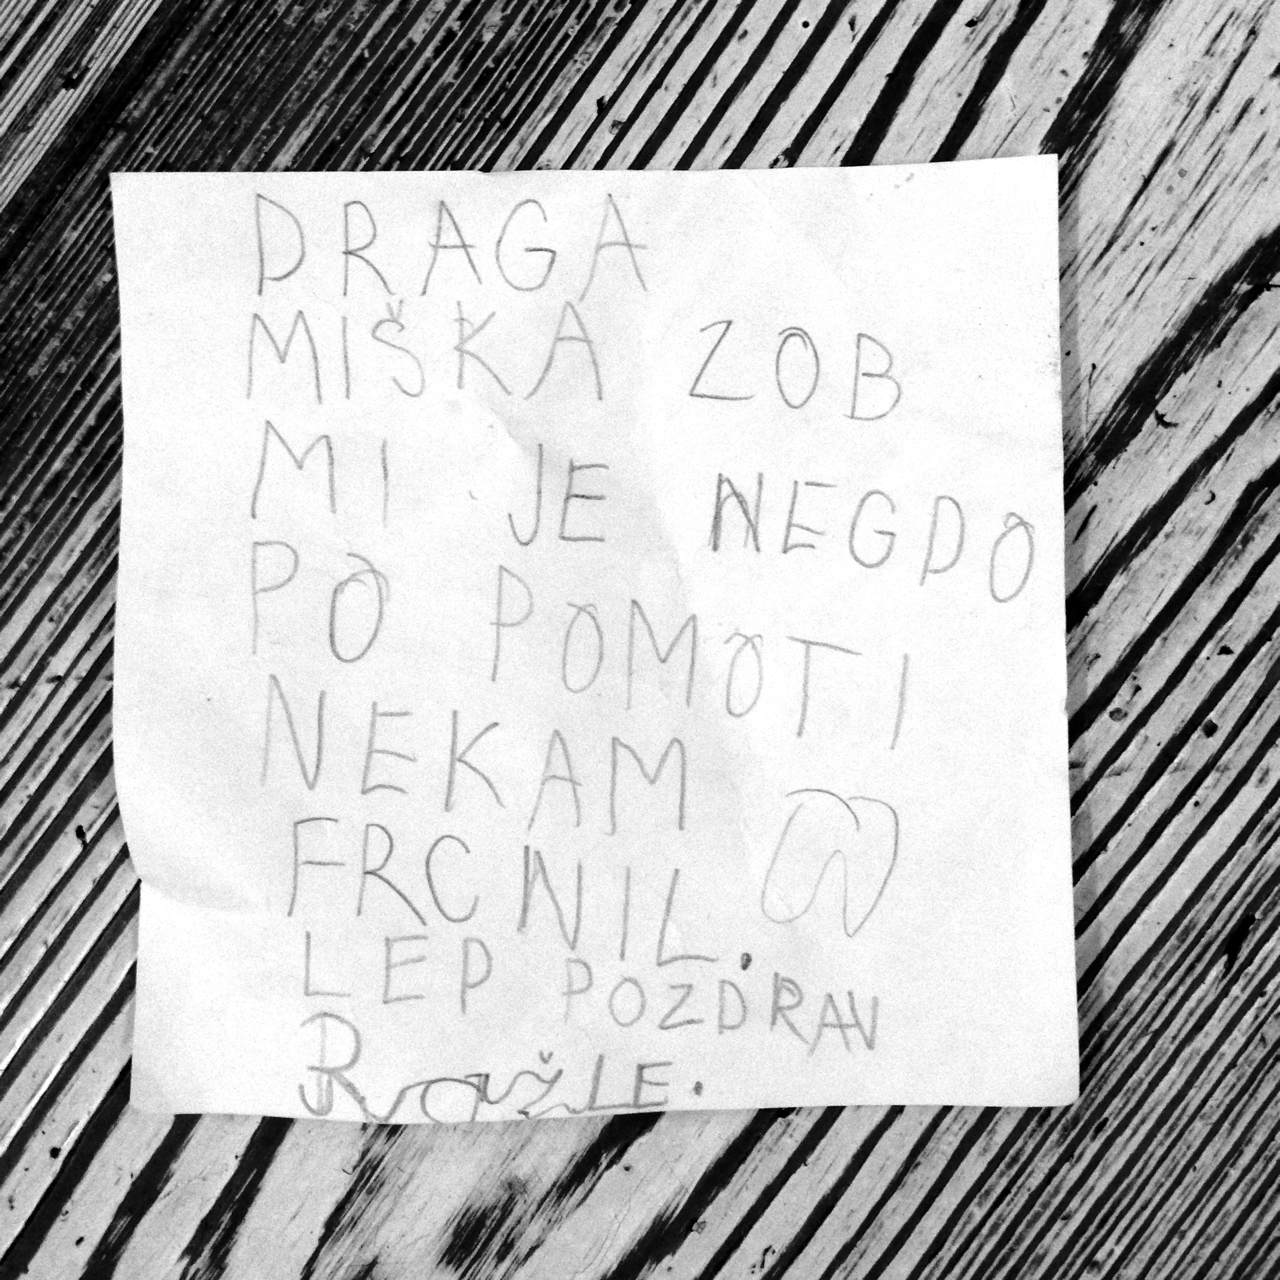 DRAGA
MIŠKA ZOB
MI JE NEGDO
PO POMOTI
NEKAM
FRCNIL.
LEP POZDRAV